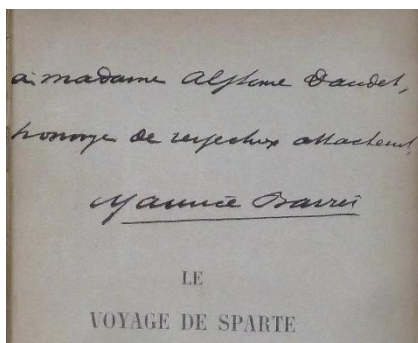 à madame Alphonse Daudet,
hommage de respectueux attachement,
Maurice Barrès
LE
VOYAGE DE SPARTE